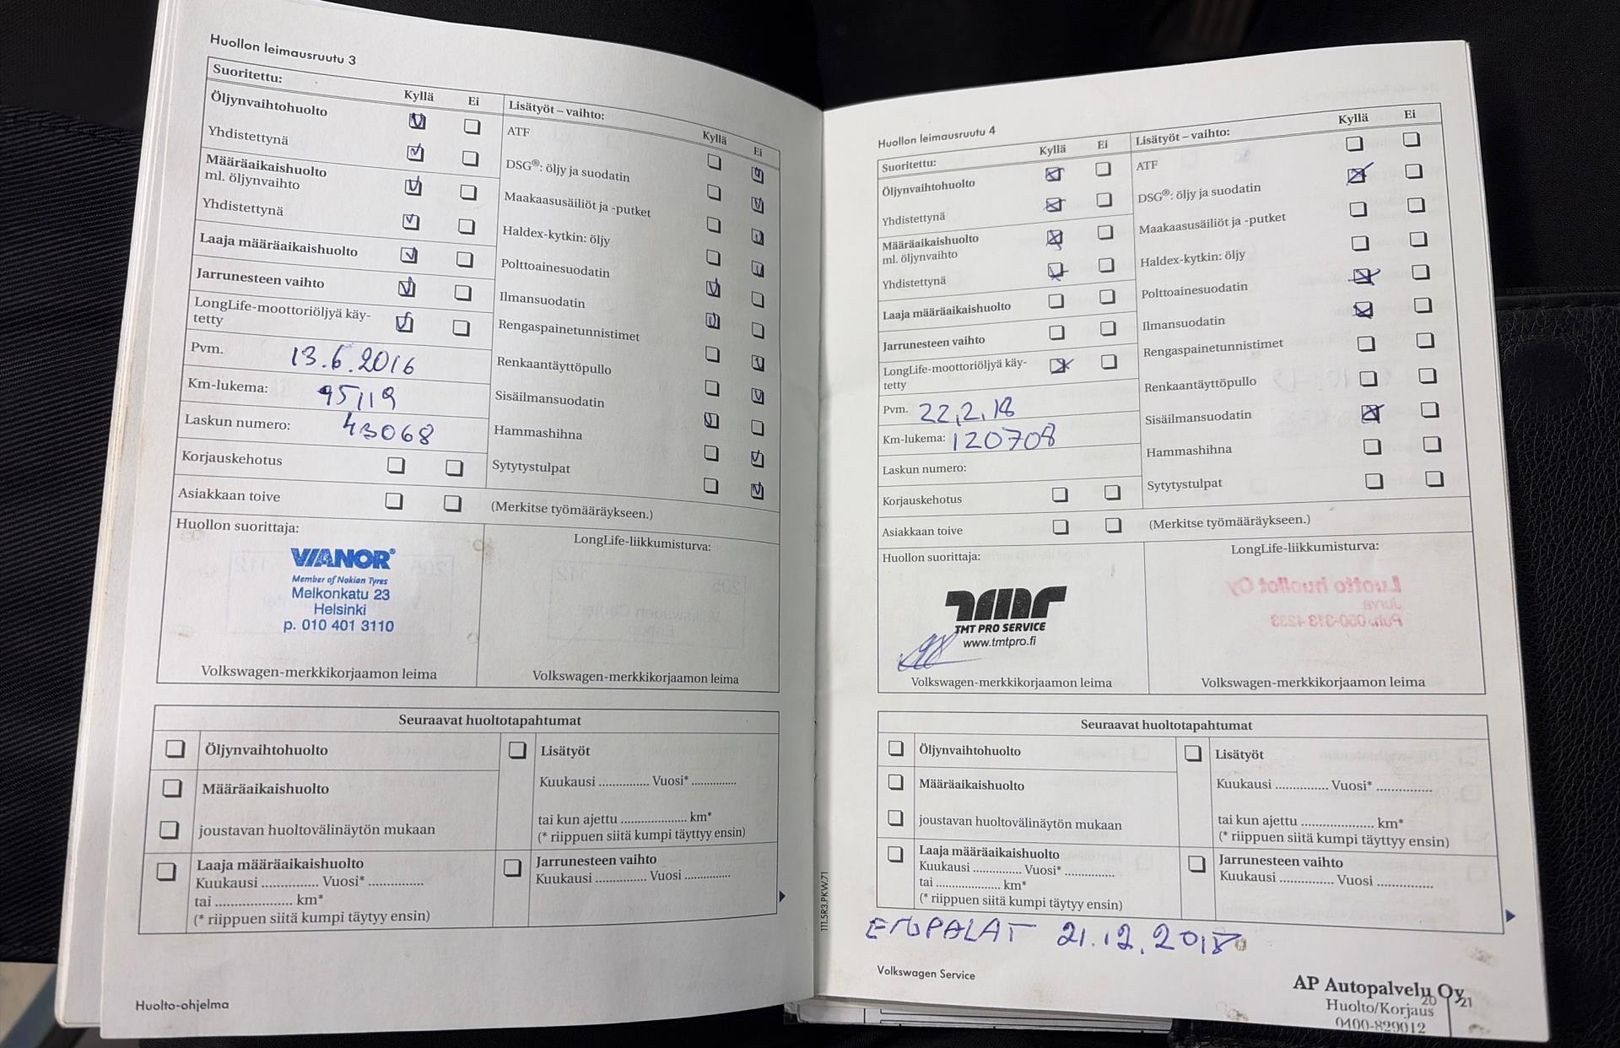 Huollon leimausruutu 3
Suoritettu:
Kyllä Ei
Öljynvaihtohuolto
Yhdistettynä
Määräaikaishuolto
ml. öljynvaihto
Yhdistettynä
Laaja määräaikaishuolto
Jarrunesteen vaihto
LongLife-moottoriöljyä käy-
tetty
Pvm. 13.6.2016
Km-lukema: 95119
Laskun numero: 43068
Korjauskehotus
Asiakkaan toive
Lisätyöt – vaihto:
Kyllä Ei
ATF
DSG®: öljy ja suodatin
Maakaasusäiliöt ja -putket
Haldex-kytkin: öljy
Polttoainesuodatin
Ilmansuodatin
Rengaspainetunnistimet
Renkaantäyttöpullo
Sisäilmansuodatin
Hammashihna
Sytytystulpat
(Merkitse työmääräykseen.)
Huollon suorittaja:
VIANOR®
Member of Nokian Tyres
Melkonkatu 23
Helsinki
p. 010 401 3110
Volkswagen-merkkikorjaamon leima
LongLife-liikkumisturva:
Volkswagen-merkkikorjaamon leima
Seuraavat huoltotapahtumat
Öljynvaihtohuolto
Määräaikaishuolto
joustavan huoltovälinäytön mukaan
Laaja määräaikaishuolto
Kuukausi ............... Vuosi* ...............
tai ..................... km*
(* riippuen siitä kumpi täytyy ensin)
Lisätyöt
Kuukausi .............. Vuosi* ............
tai kun ajettu .................... km*
(* riippuen siitä kumpi täyttyy ensin)
Jarrunesteen vaihto
Kuukausi .............. Vuosi ............
Huolto-ohjelma
111.5R3.PKW.71
Huollon leimausruutu 4
Suoritettu:
Kyllä Ei
Öljynvaihtohuolto
Yhdistettynä
Määräaikaishuolto
ml. öljynvaihto
Yhdistettynä
Laaja määräaikaishuolto
Jarrunesteen vaihto
LongLife-moottoriöljyä käy-
tetty
Pvm. 22,2,18
Km-lukema: 120708
Laskun numero:
Korjauskehotus
Asiakkaan toive
Lisätyöt – vaihto:
Kyllä Ei
ATF
DSG®: öljy ja suodatin
Maakaasusäiliöt ja -putket
Haldex-kytkin: öljy
Polttoainesuodatin
Ilmansuodatin
Rengaspainetunnistimet
Renkaantäyttöpullo
Sisäilmansuodatin
Hammashihna
Sytytystulpat
(Merkitse työmääräykseen.)
Huollon suorittaja:
TMT PRO SERVICE
www.tmtpro.fi
Volkswagen-merkkikorjaamon leima
LongLife-liikkumisturva:
Luotto huollot Oy
Jurva
Volkswagen-merkkikorjaamon leima
Seuraavat huoltotapahtumat
Öljynvaihtohuolto
Määräaikaishuolto
joustavan huoltovälinäytön mukaan
Laaja määräaikaishuolto
Kuukausi .............. Vuosi* ..............
tai ..................... km*
(* riippuen siitä kumpi täytyy ensin)
Lisätyöt
Kuukausi .............. Vuosi* ..............
tai kun ajettu .................... km*
(* riippuen siitä kumpi täyttyy ensin)
Jarrunesteen vaihto
Kuukausi .............. Vuosi ..............
ETUPALAT 21.12.2018
Volkswagen Service
AP Autopalvelu Oy
20 21
Huolto/Korjaus
0400-829012